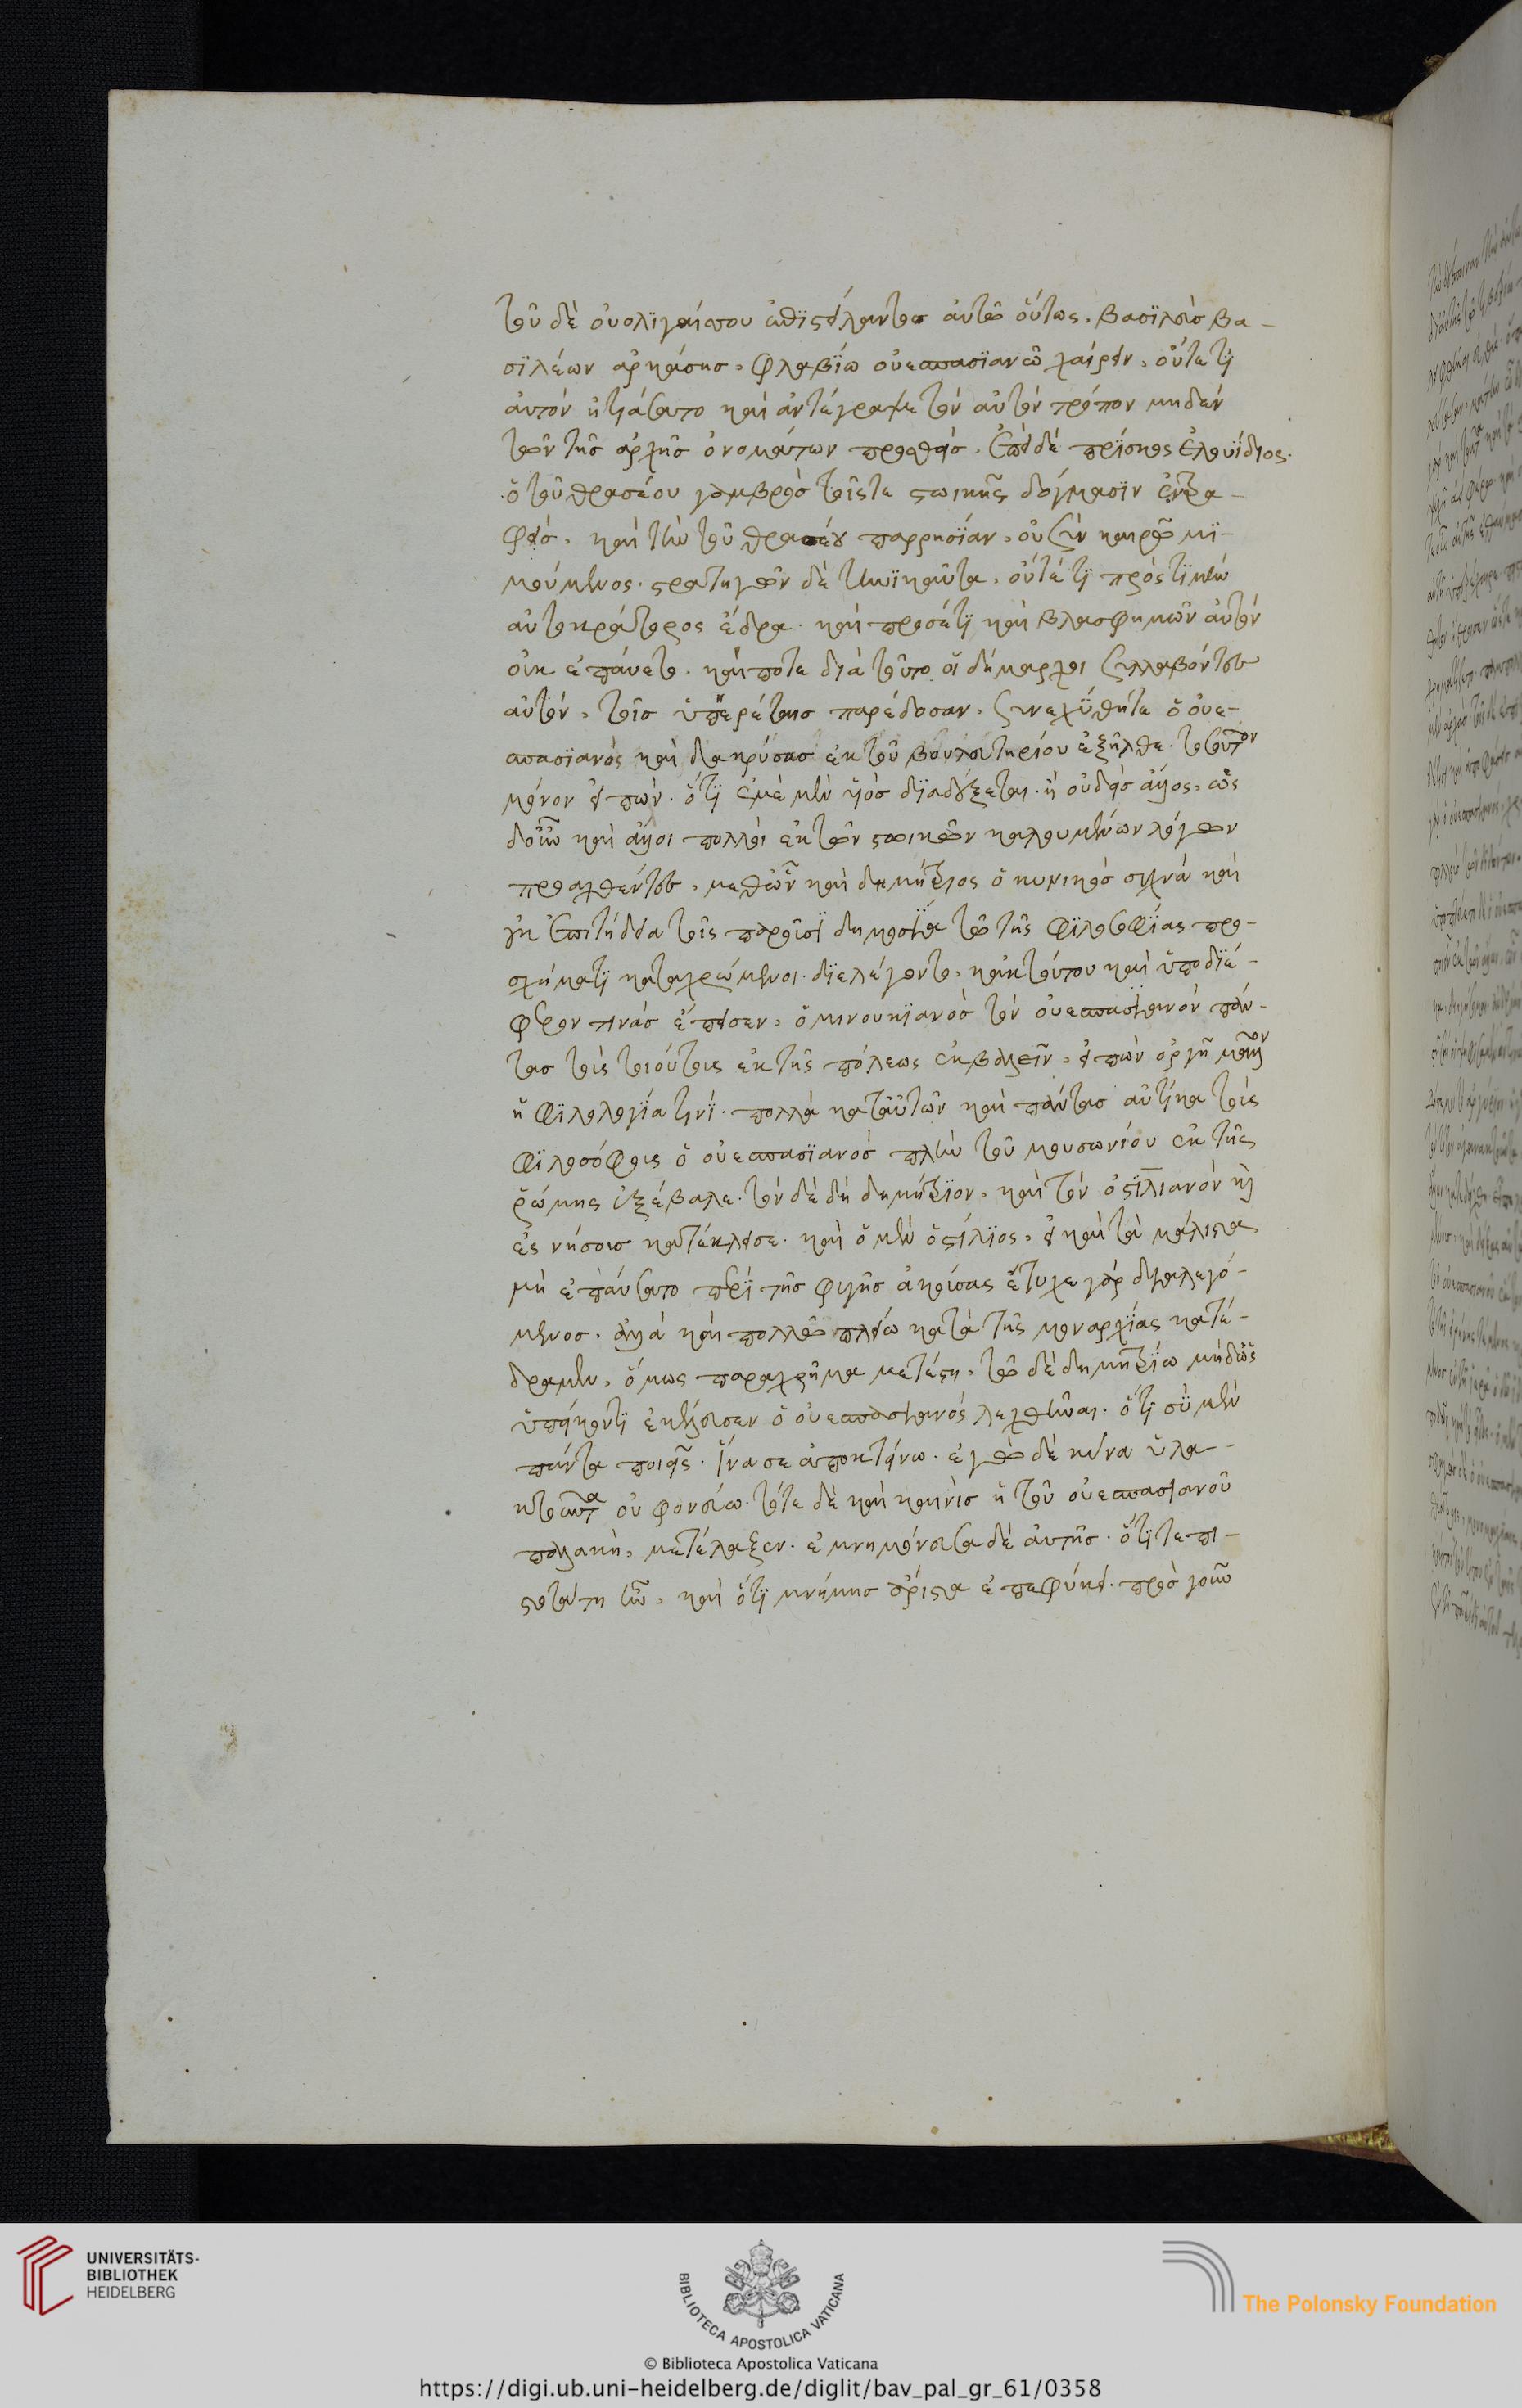 τοῦ δὲ οὐολϊγαίσου ἐπϊστείλαντοσ αὐτῶ οὕτως. βασϊλεὺσ βα-
σϊλέων ἀρσάκησ, φλαβϊω οὐεσπασϊανῶ χαίρειν, οὔτε τϊ
αὐτὸν ἠτιάσατο καὶ ἀντέγραψε τὸν αὐτὸν τρόπον μηδὲν
τῶν τῆσ ἀρχῆσ ὀνομάτων προσθείσ. ἐπεὶ δὲ πρϊσκος ἑλουΐδιος.
ὁ τοῦ θρασέου γαμβρὸσ τοῖς τε στωικοῖς δόγμασϊν ἐντρα-
φεὶσ. καὶ τὴν τοῦ θρασέου παρρησϊαν, οὐ σὺν καιρῶ μϊ-
μούμενος. στρατηγῶν δὲ τηνϊκαῦτα, οὔτέ τϊ πρὸς τϊμὴν
αὐτοκράτορος ἔδρα. καὶ προσέτϊ καὶ βλασφημῶν αὐτὸν
οὐκ ἐπαύετο. καί ποτε διὰ τοῦτο οἱ δήμαρχοι συλλαβόντες
αὐτὸν, τοῖσ ὑπηρέταισ παρέδοσαν, συνεχΰθη τε ὁ οὐε-
σπασϊανὸς καὶ δακρύσασ ἐκ τοῦ βουλευτηρίου ἐξῆλθε. τοσοῦτον
μόνον εἰπὼν. ὅτϊ ἐμὲ μὲν υἱὸσ δϊαδέξεται. ἢ οὐδεὶσ ἄλλος, ὡς
δ' οὖν καὶ ἄλλοι πολλοὶ ἐκ τῶν στωικῶν καλουμένων λόγων
προαχθέντες, μεθ' ὧν καὶ δημήτριος ὁ κυνικὸσ συχνὰ καὶ
οὐκ ἐπιτήδεια τοῖς παροῦσϊ δημοσϊα τῶ τῆς φϊλοσοφϊας προ-
σχήματϊ καταχρώμενοι. δϊελέγοντο, κἀκ τούτου καὶ ὑποδϊέ-
φθειρόν τινάσ ἔπεισεν, ὁ μουκιανὸσ τὸν οὐεσπασϊανὸν πάν-
τασ τοὺς τοιούτους ἐκ τῆς πόλεως ἐκβαλεῖν, εἰπὼν ὀργῆ μᾶλλον
ἢ φϊλολογϊα τινϊ. πολλὰ κατ' αὐτῶν καὶ πάντασ αὐτίκα τοὺς
φϊλοσόφους ὁ οὐεσπασϊανὸσ πλὴν τοῦ μουσωνίου ἐκ τῆς
ῥώμης ἐξέβαλε. τὸν δὲ δὴ δημήτριον, καὶ τὸν ὁστϊλιανὸν καὶ
ἐς νήσουσ κατέκλεισε. καὶ ὁ μὲν ὁστίλϊος, εἰ καὶ τὰ μάλιστα
μὴ ἐπαύσατο περὶ τῆσ φυγῆσ ἀκούσας ἔτυχε γὰρ διαλεγό-
μενοσ. ἀλλὰ καὶ πολλῶ πλείω κατὰ τῆς μοναρχϊας κατέ-
δραμεν, ὅμως παραχρῆμα μετέστη, τῶ δὲ δημητρϊω μηδ' ὣς
ὑπείκοντϊ ἐκέλευσεν ὁ οὐεσπασϊανὸς λεχθῆναι. ὅτϊ σὺ μὲν
πάντα ποιεῖς. ἵνα σε ἀποκτείνω. ἐγὼ δὲ κύνα ὑλα-
κτοῦντα οὐ φονεύω. τότε δὲ καὶ καινὶσ ἡ τοῦ οὐεσπασιανοῦ
παλλακὴ, μετέλαξεν. ἐμνημόνευσα δὲ αὐτῆσ. ὅτϊ τε πι-
στοτάτη ἦν, καὶ ὅτϊ μνήμησ ἄριστα ἐπεφύκει. πρὸσ γοῦν
UNIVERSITÄTS-
BIBLIOTHEK
HEIDELBERG
BIBLIOTECA APOSTOLICA VATICANA
© Biblioteca Apostolica Vaticana
The Polonsky Foundation
https://digi.ub.uni-heidelberg.de/diglit/bav_pal_gr_61/0358